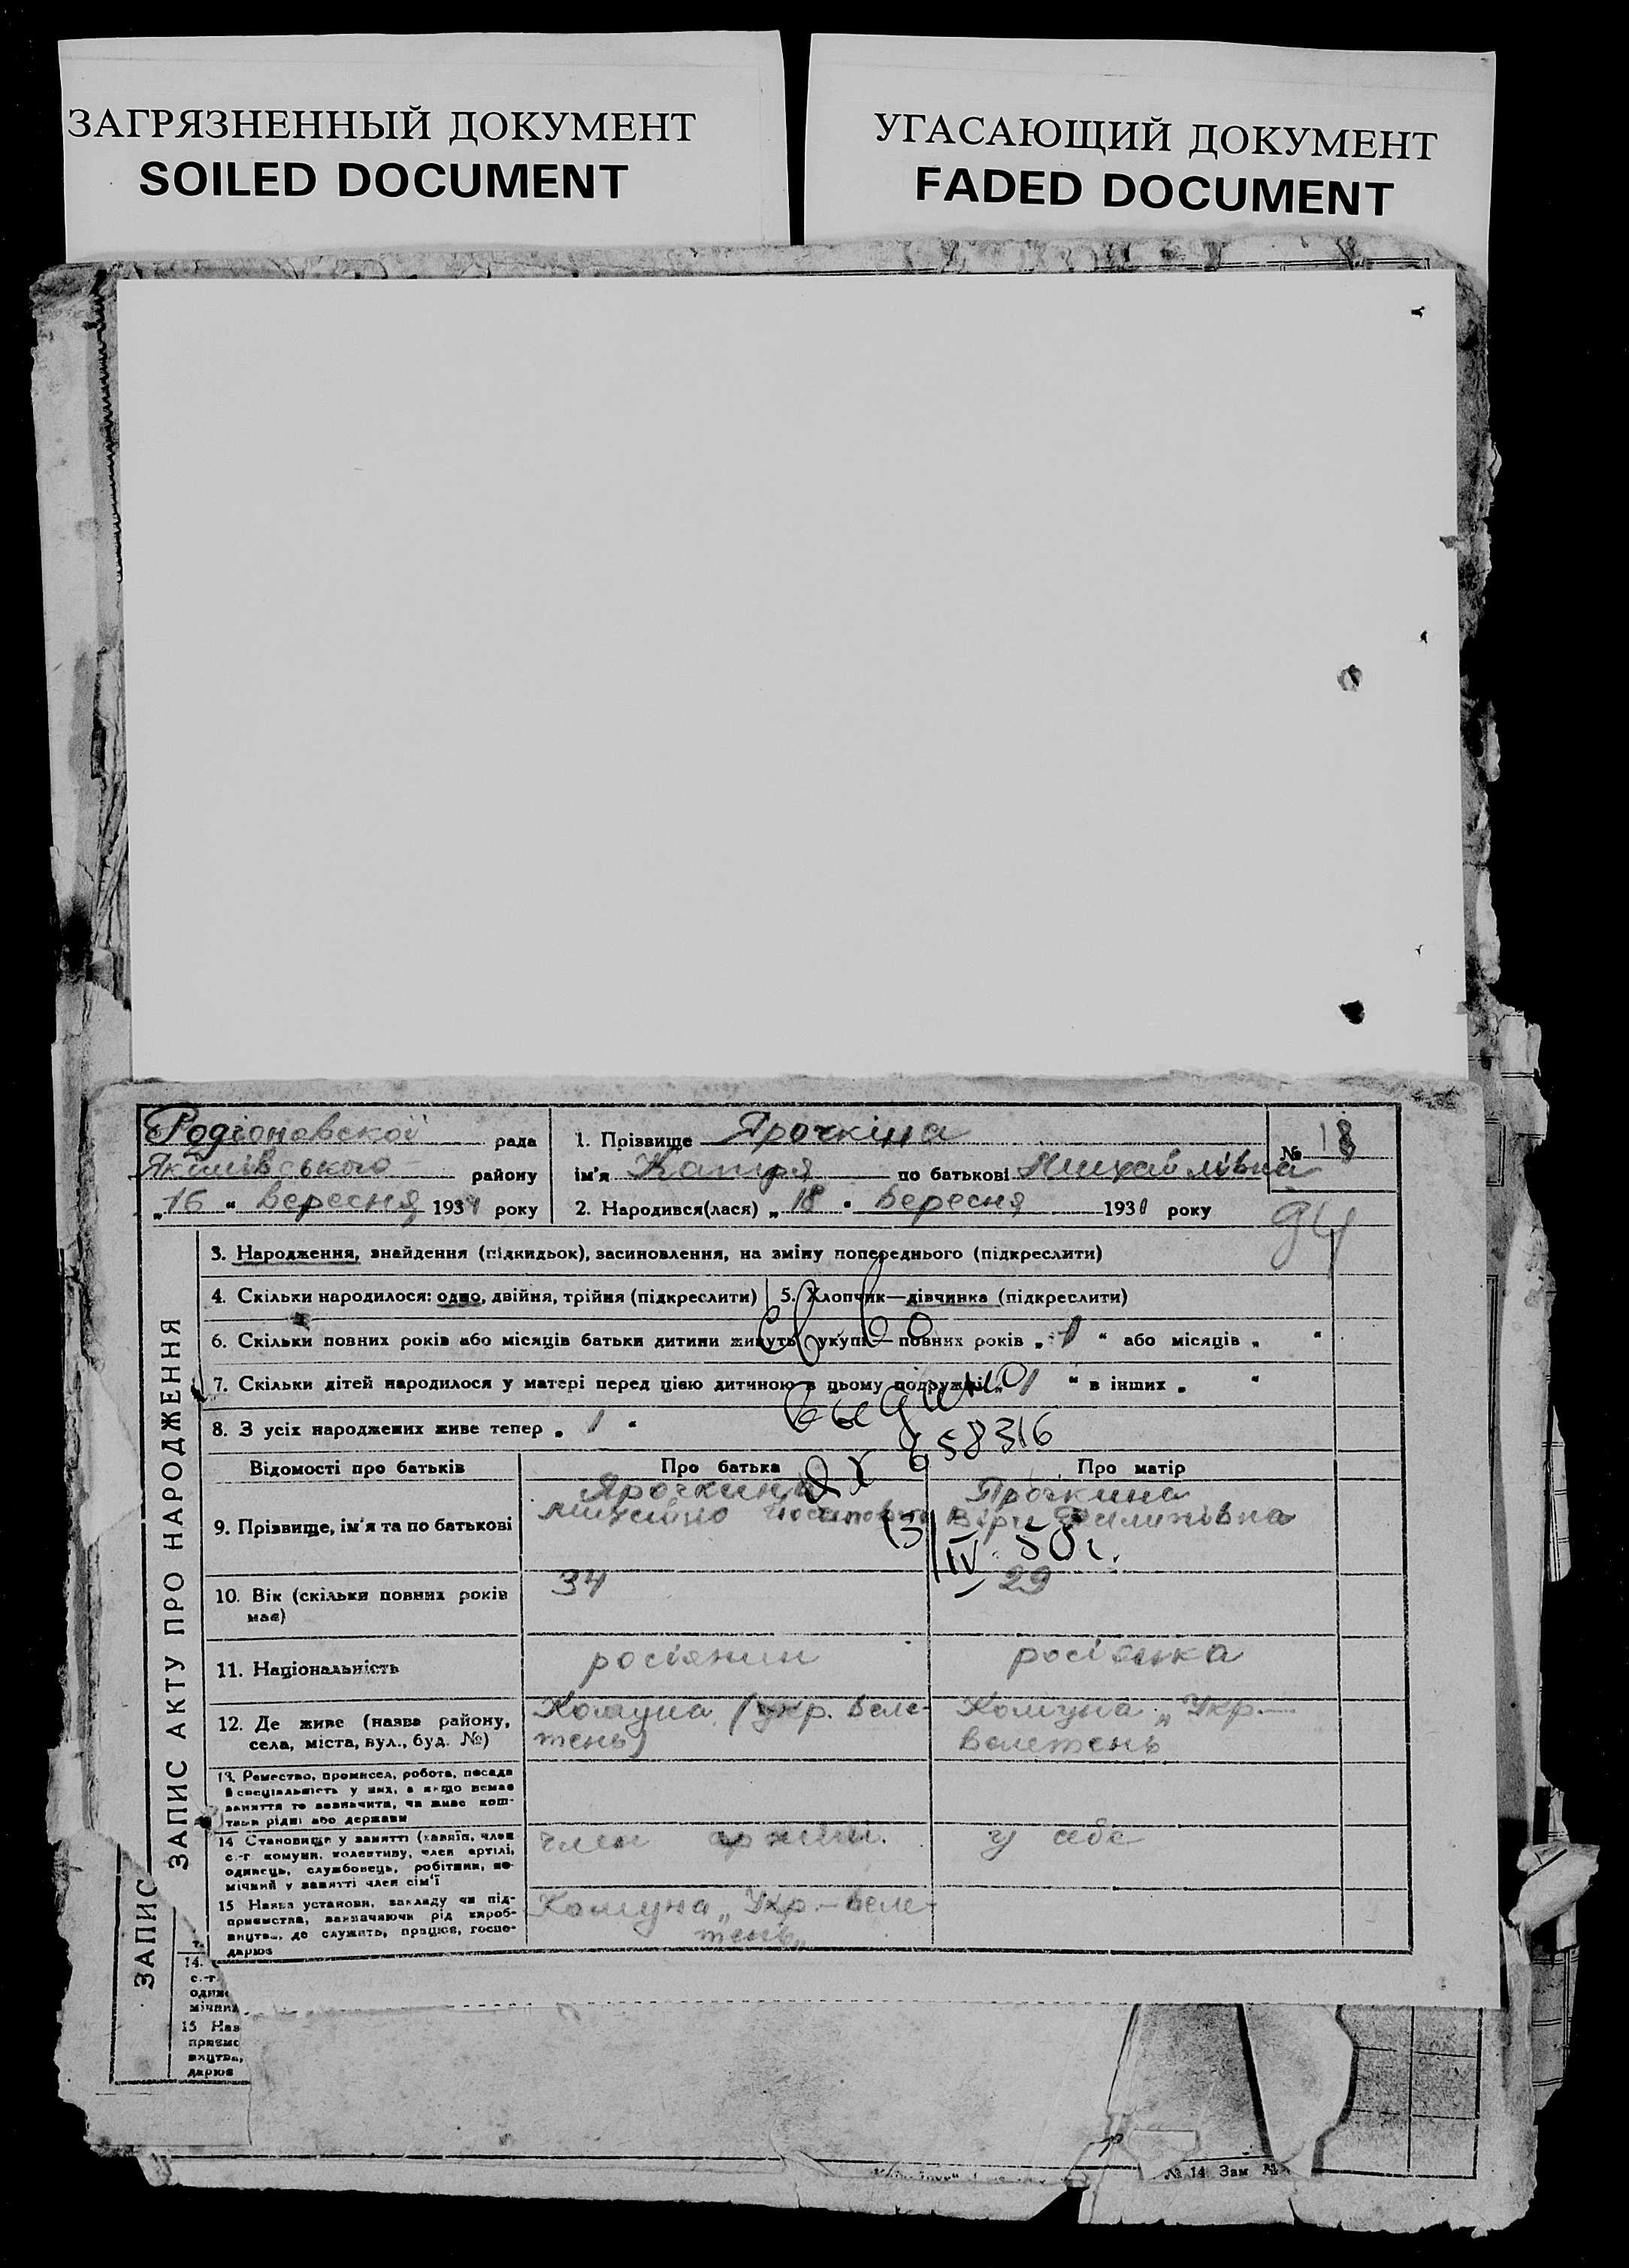 ЗАГРЯЗНЕННЫЙ ДОКУМЕНТ
SOILED DOCUMENT
УГАСАЮЩИЙ ДОКУМЕНТ
FADED DOCUMENT
Родіоновской рада
Якимівського району
„16“ Вересня 193 року
1. Прізвище Ярочкіна
ім'я Катря по батькові Михайлівна
2. Народився(лася) „18“ Вересня 193 року
№ 18
94
ЗАПИС АКТУ ПРО НАРОДЖЕННЯ
3. Народження, знайдення (підкидьок), засиновлення, на зміну попереднього (підкреслити)
4. Скільки народилося: одно, двійня, трійня (підкреслити)
5. Хлопчик—дівчинка (підкреслити)
6. Скільки повних років або місяців батьки дитини живуть укупі—повних років „1“ або місяців „ “
7. Скільки дітей народилося у матері перед цією дитиною в цьому подружжі „1“ в інших „ “
8. З усіх народжених живе тепер „1“
Св во
выдано
658316
IV 50 г.
Відомості про батьків
Про батька
Про матір
9. Прізвище, ім'я та по батькові
Ярочкин
Михайло
Ярочкина
Віра Филипівна
10. Вік (скільки повних років
має)
34
29
11. Національність
росіянин
росіянка
12. Де живе (назва району,
села, міста, вул., буд. №)
Комуна (укр. веле-
тень)
Комуна „Укр.—
велетень
13. Ремество, промисел, робота, посада
й спеціальність у них, а якщо немає
заняття то зазначити, чи живе кош-
тами рідні або держави
14 Становище у занятті (хазяїн, член
с.-г. комуни, колективу, член артілі,
одинець, службовець, робітник, по-
мічний у занятті член сім'ї
член артіли.
у себе
15 Назва установи, закладу чи під-
приємства, зазначаючи рід вироб-
ництва, де служить, працює, госпо-
дарює
Комуна „Укр.—веле-
тень„
ЗАПИС
14.
с.-г.
один
мічний
15 Наз
приємс
ництва,
дарює
№ 14 Зам №